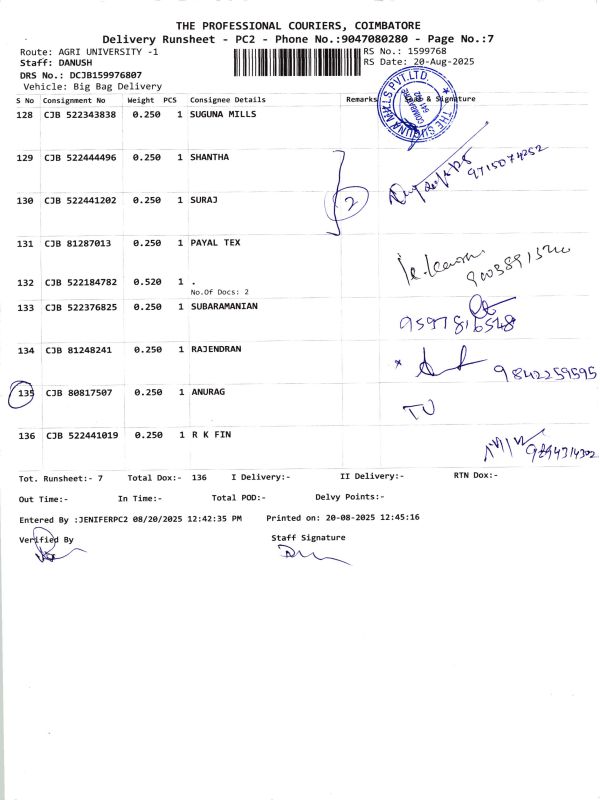 THE PROFESSIONAL COURIERS, COIMBATORE
Delivery Runsheet - PC2 - Phone No.:9047080280 - Page No.:7
Route: AGRI UNIVERSITY -1 RS No.: 1599768
Staff: DANUSH RS Date: 20-Aug-2025
DRS No.: DCJB159976807
Vehicle: Big Bag Delivery
S No Consignment No Weight PCS Consignee Details Remarks & Signature
128 CJB 522343838 0.250 1 SUGUNA MILLS
THE SUGUNA MILLS PVT.LTD. COIMBATORE
129 CJB 522444496 0.250 1 SHANTHA
9715074252
130 CJB 522441202 0.250 1 SURAJ 2
131 CJB 81287013 0.250 1 PAYAL TEX
132 CJB 522184782 0.520 1 .
No.Of Docs: 2
133 CJB 522376825 0.250 1 SUBARAMANIAN
9597816548
134 CJB 81248241 0.250 1 RAJENDRAN
9842259595
135 CJB 80817507 0.250 1 ANURAG
136 CJB 522441019 0.250 1 R K FIN
9894314302
Tot. Runsheet:- 7 Total Dox:- 136 I Delivery:- II Delivery:- RTN Dox:-
Out Time:- In Time:- Total POD:- Delvy Points:-
Entered By :JENIFERPC2 08/20/2025 12:42:35 PM Printed on: 20-08-2025 12:45:16
Verified By Staff Signature